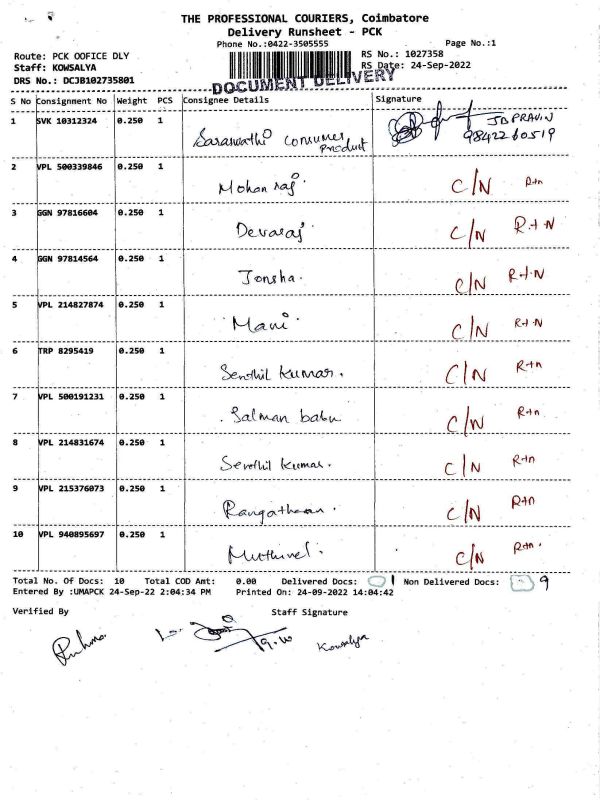 THE PROFESSIONAL COURIERS, Coimbatore
Delivery Runsheet - PCK
Phone No.:0422-3505555 Page No.:1
Route: PCK OOFICE DLY RS No.: 1027358
Staff: KOWSALYA RS Date: 24-Sep-2022
DRS No.: DCJB102735801
DOCUMENT DELIVERY
S No Consignment No Weight PCS Consignee Details Signature
1 SVK 10312324 0.250 1 Saraswathi Consumer Product JB PRAVIN
9842260519
2 VPL 500339846 0.250 1 Mohan raj C/N R+n
3 GGN 97816604 0.250 1 Devaraj C/N R.t.N
4 GGN 97814564 0.250 1 Jonsha. C/N R.t.N
5 VPL 214827874 0.250 1 Mani C/N R.t.N
6 TRP 8295419 0.250 1 Sendhil Kumar. C/N R+n
7 VPL 500191231 0.250 1 Salman babu C/N R+n
8 VPL 214831674 0.250 1 Sendhil Kumar. C/N R+n
9 VPL 215376073 0.250 1 C/N R+n
10 VPL 940895697 0.250 1 Muthuvel. C/N R+n.
Total No. Of Docs: 10 Total COD Amt: 0.00 Delivered Docs: 1 Non Delivered Docs: 9
Entered By :UMAPCK 24-Sep-22 2:04:34 PM Printed On: 24-09-2022 14:04:42
Verified By Staff Signature
Kowsalya